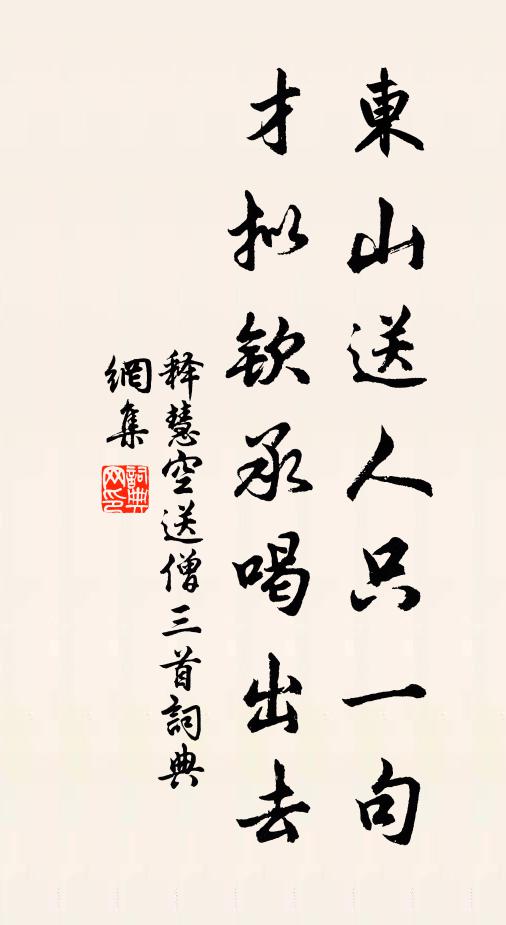 東山送人只一句
才拟欽承喝出去
释慧空送僧三首詞典
網集
詞典
网印